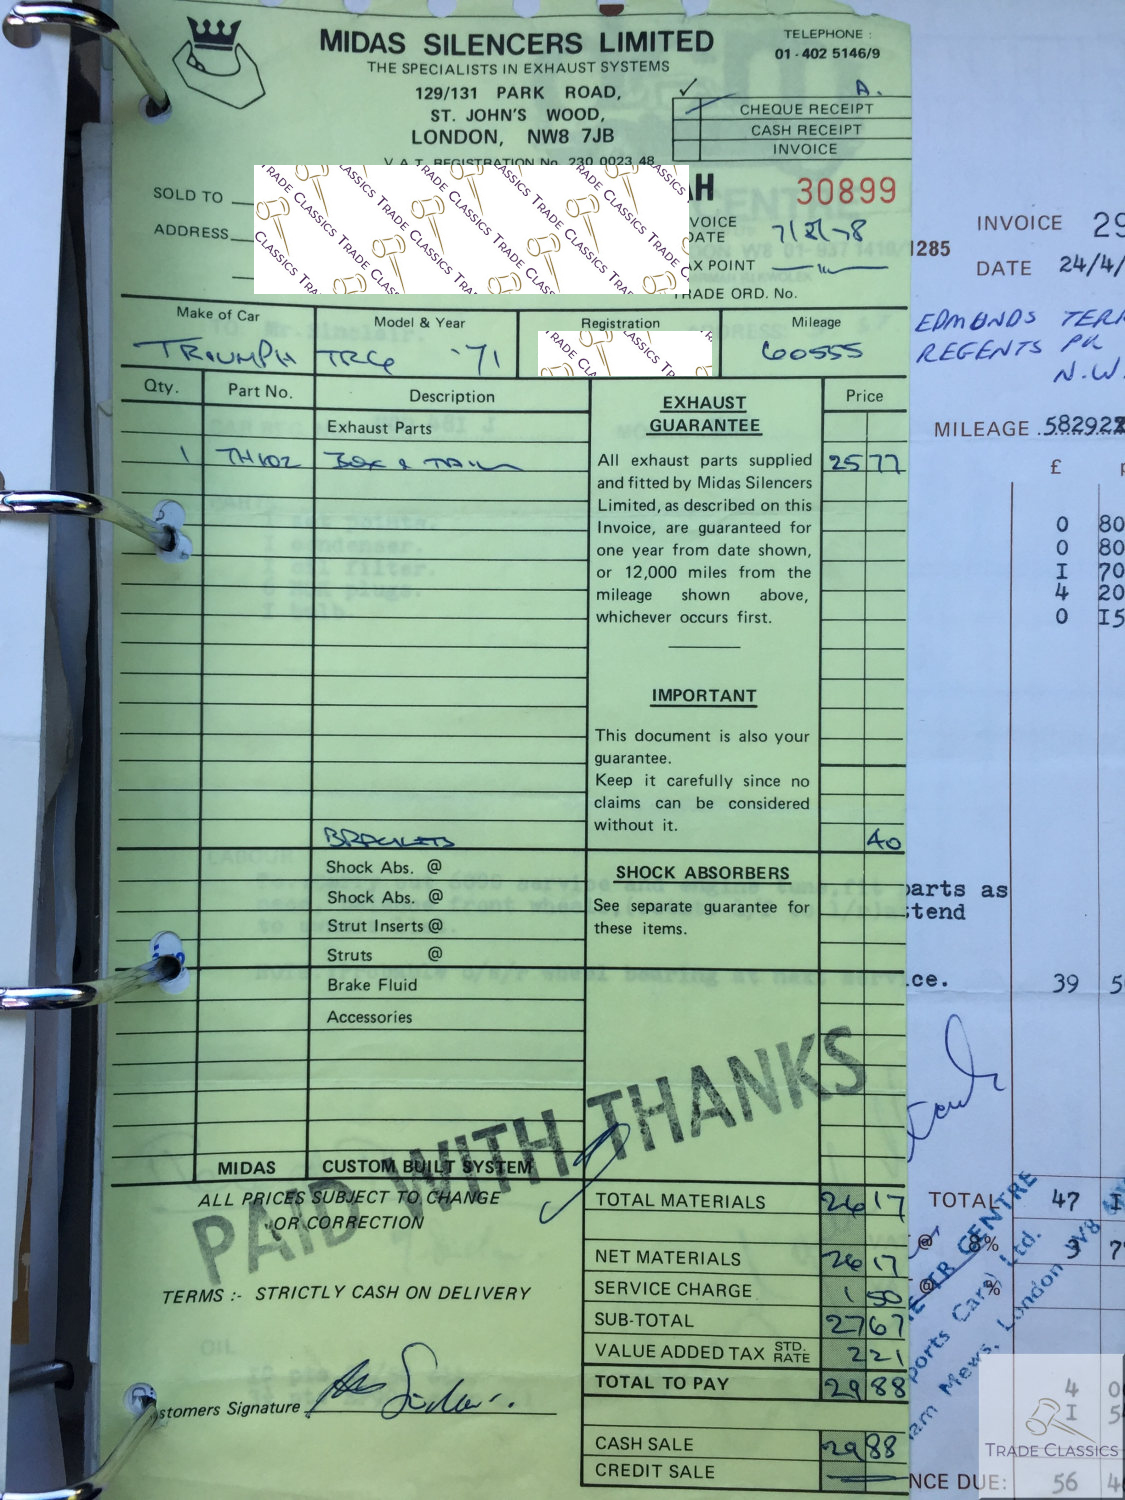 MIDAS SILENCERS LIMITED
THE SPECIALISTS IN EXHAUST SYSTEMS
129/131 PARK ROAD,
ST. JOHN'S WOOD,
LONDON, NW8 7JB
V.A.T. REGISTRATION No. 230 0023 48
TELEPHONE :
01-402 5146/9
A.
CHEQUE RECEIPT
CASH RECEIPT
INVOICE
SOLD TO
ADDRESS
AH 30899
VOICE
DATE 7/2/78
AX POINT
TRADE ORD. No.
Make of Car Model & Year Registration Mileage
TRIUMPH TR6 '71 60555
Qty. Part No. Description Price
Exhaust Parts
1 TH102 BOX & TAIL 25 77
EXHAUST
GUARANTEE
All exhaust parts supplied
and fitted by Midas Silencers
Limited, as described on this
Invoice, are guaranteed for
one year from date shown,
or 12,000 miles from the
mileage shown above,
whichever occurs first.
IMPORTANT
This document is also your
guarantee.
Keep it carefully since no
claims can be considered
without it.
BRACKETS 40
Shock Abs. @
Shock Abs. @
Strut Inserts @
Struts @
Brake Fluid
Accessories
SHOCK ABSORBERS
See separate guarantee for
these items.
MIDAS CUSTOM BUILT SYSTEM
PAID WITH THANKS
ALL PRICES SUBJECT TO CHANGE
OR CORRECTION
TERMS :- STRICTLY CASH ON DELIVERY
stomers Signature
TOTAL MATERIALS 26 17
NET MATERIALS 26 17
SERVICE CHARGE 1 50
SUB-TOTAL 27 67
VALUE ADDED TAX STD. RATE 2 21
TOTAL TO PAY 29 88
CASH SALE 29 88
CREDIT SALE
1285
INVOICE 29
DATE 24/4/
EDMUNDS TERR
REGENTS PK
N.W.
MILEAGE 58292
£ p
0 80
0 80
I 70
4 20
0 I5
parts as
tend
ce. 39 5
TOTAL 47 I
@ 8% 3 7
@ %
TR CENTRE
ports Cars) Ltd.
am Mews, London W8
4 0
I 5
NCE DUE: 56 4
TRADE CLASSICS